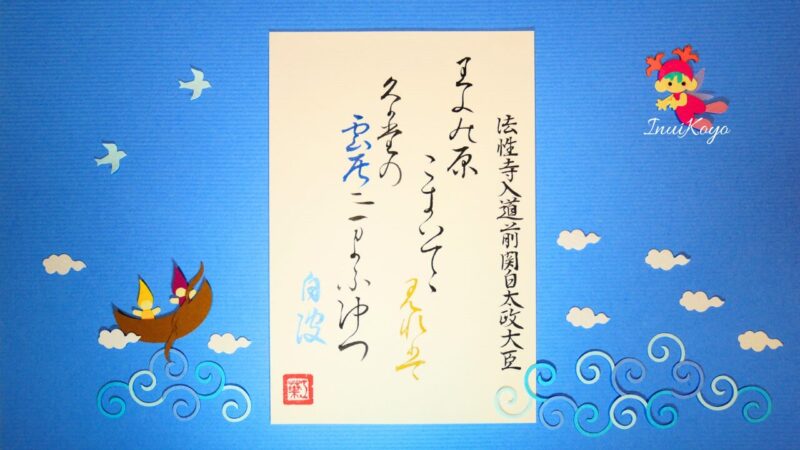 法性寺入道前関白太政大臣
わたの原
こきいてゝ見れは
久堂の
雲居二まかふ沖つ
白波
InuiKoyo